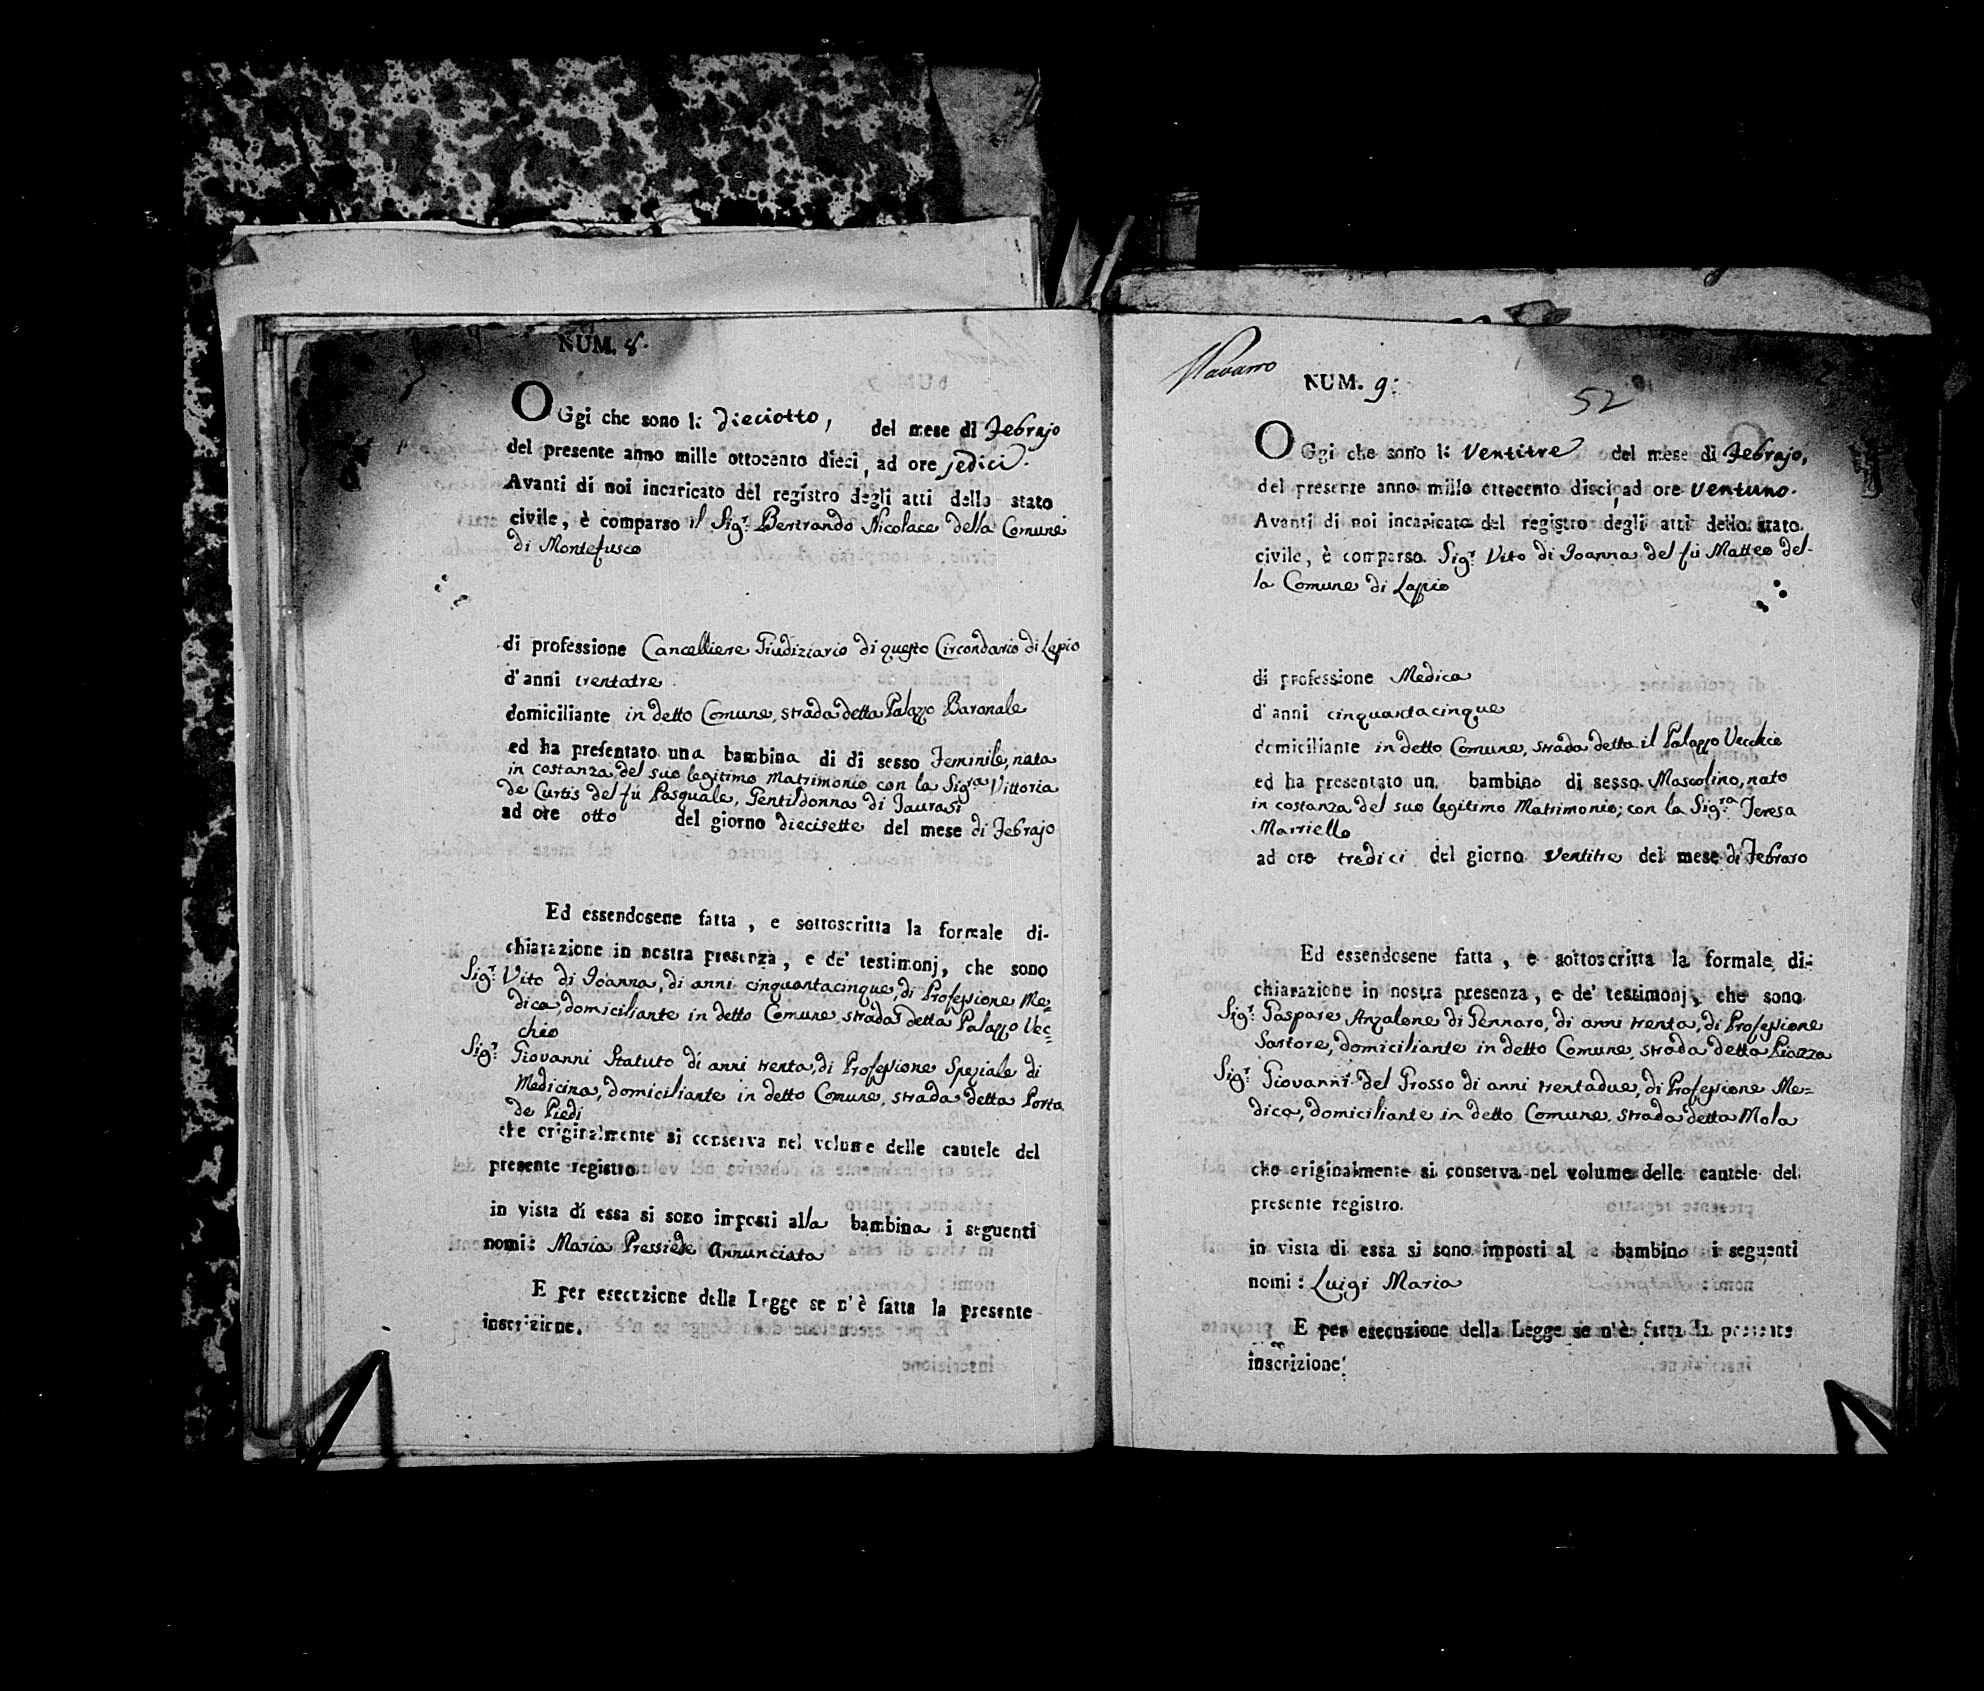 NUM. 8.
OGgi che sono li dieciotto, del mese di Febrajo
del presente anno mille ottocento dieci, ad ore sedici.
Avanti di noi incaricato del registro degli atti dello stato
civile, è comparso il Sigr. Bertrando Nicolace della Comune
di Montefusco
di professione Cancelliere Giudiziario di questo Circondario di Lapio
d'anni trentatre
domiciliante in detto Comune, strada detta Palazzo Baronale
ed ha presentato una bambina di di sesso Feminile, nata
in costanza del suo legitimo Matrimonio con la Sigra. Vittoria
de Curtis del fù Pasquale, Gentildonna di Taurasi
ad ore otto del giorno diecisette del mese di Febrajo
Ed essendosene fatta, e sottoscritta la formale di-
chiarazione in nostra presenza, e de' testimonj, che sono
Sigr. Vito di Joanna, di anni cinquantacinque, di Professione Me=
dica, domiciliante in detto Comune, strada detta Palazzo Vec=
chio
Sigr. Giovanni Statuto di anni trenta, di Professione Speziale di
Medicina, domiciliante in detto Comune, strada detta Porta
de Piedi
che originalmente si conserva nel volume delle cautele del
presente registro
in vista di essa si sono imposti alla bambina i seguenti
nomi: Maria Annunciata
E per esecuzione della Legge se n'è fatta la presente
inscrizione.
Navarro
NUM. 9:
52
OGgi che sono li Ventitre del mese di Febrajo,
del presente anno mille ottocento dieci, ad ore ventuno.
Avanti di noi incaricato del registro degli atti dello stato
civile, è comparso Sigr. Vito di Joanna del fù Matteo del-
la Comune di Lapio
di professione Medica
d'anni cinquantacinque
domiciliante in detto Comune, strada detta il Palazzo Vecchio
ed ha presentato un bambino di sesso Mascolino, nato
in costanza del suo legitimo Matrimonio; con la Sigra. Teresa
Marriello
ad ore tredici del giorno ventitre del mese di Febraro
Ed essendosene fatta, e sottoscritta la formale di-
chiarazione in nostra presenza, e de' testimonj, che sono
Sigr. Gaspare Anzalone di Gennaro, di anni trenta, di Professione
Sartore, domiciliante in detto Comune, strada detta Piazza
Sigr. Giovanni del Grosso di anni trentadue, di Professione Me=
dica, domiciliante in detto Comune, strada detta Mola
che originalmente si conserva nel volume delle cautele del
presente registro.
in vista di essa si sono imposti al bambino i seguenti
nomi: Luigi Maria
E per esecuzione della Legge se n'è fatta la presente
inscrizione.